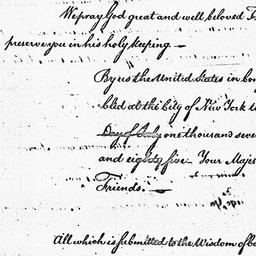 We pray God great and well beloved Fr
preserve you in his holy keeping. —
By us the United States in con
bled at the City of New York t
Day of July one thousand seve
and eighty five — Your Majes
Friends. —
All which is submitted to the Wisdom of Co